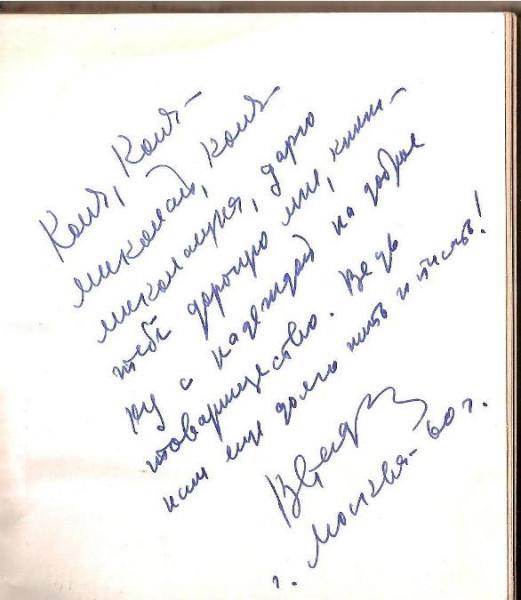 Коля, Коля-
миколай, Коля-
миколауня, дарю
тебе дорогую мне, книж-
ку с надеждой на доброе
товарищество. Ведь
нам еще долго жить и писать!
г. Москва- 60 г.